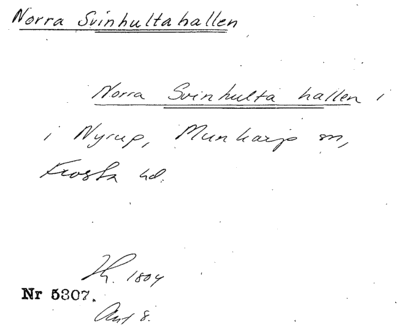 Norra Svinhultahallen
Norra Svinhulta hallen i
i Nyrup, Munkarp sn,
Frosta hd.
1804
Nr 5307.
8.